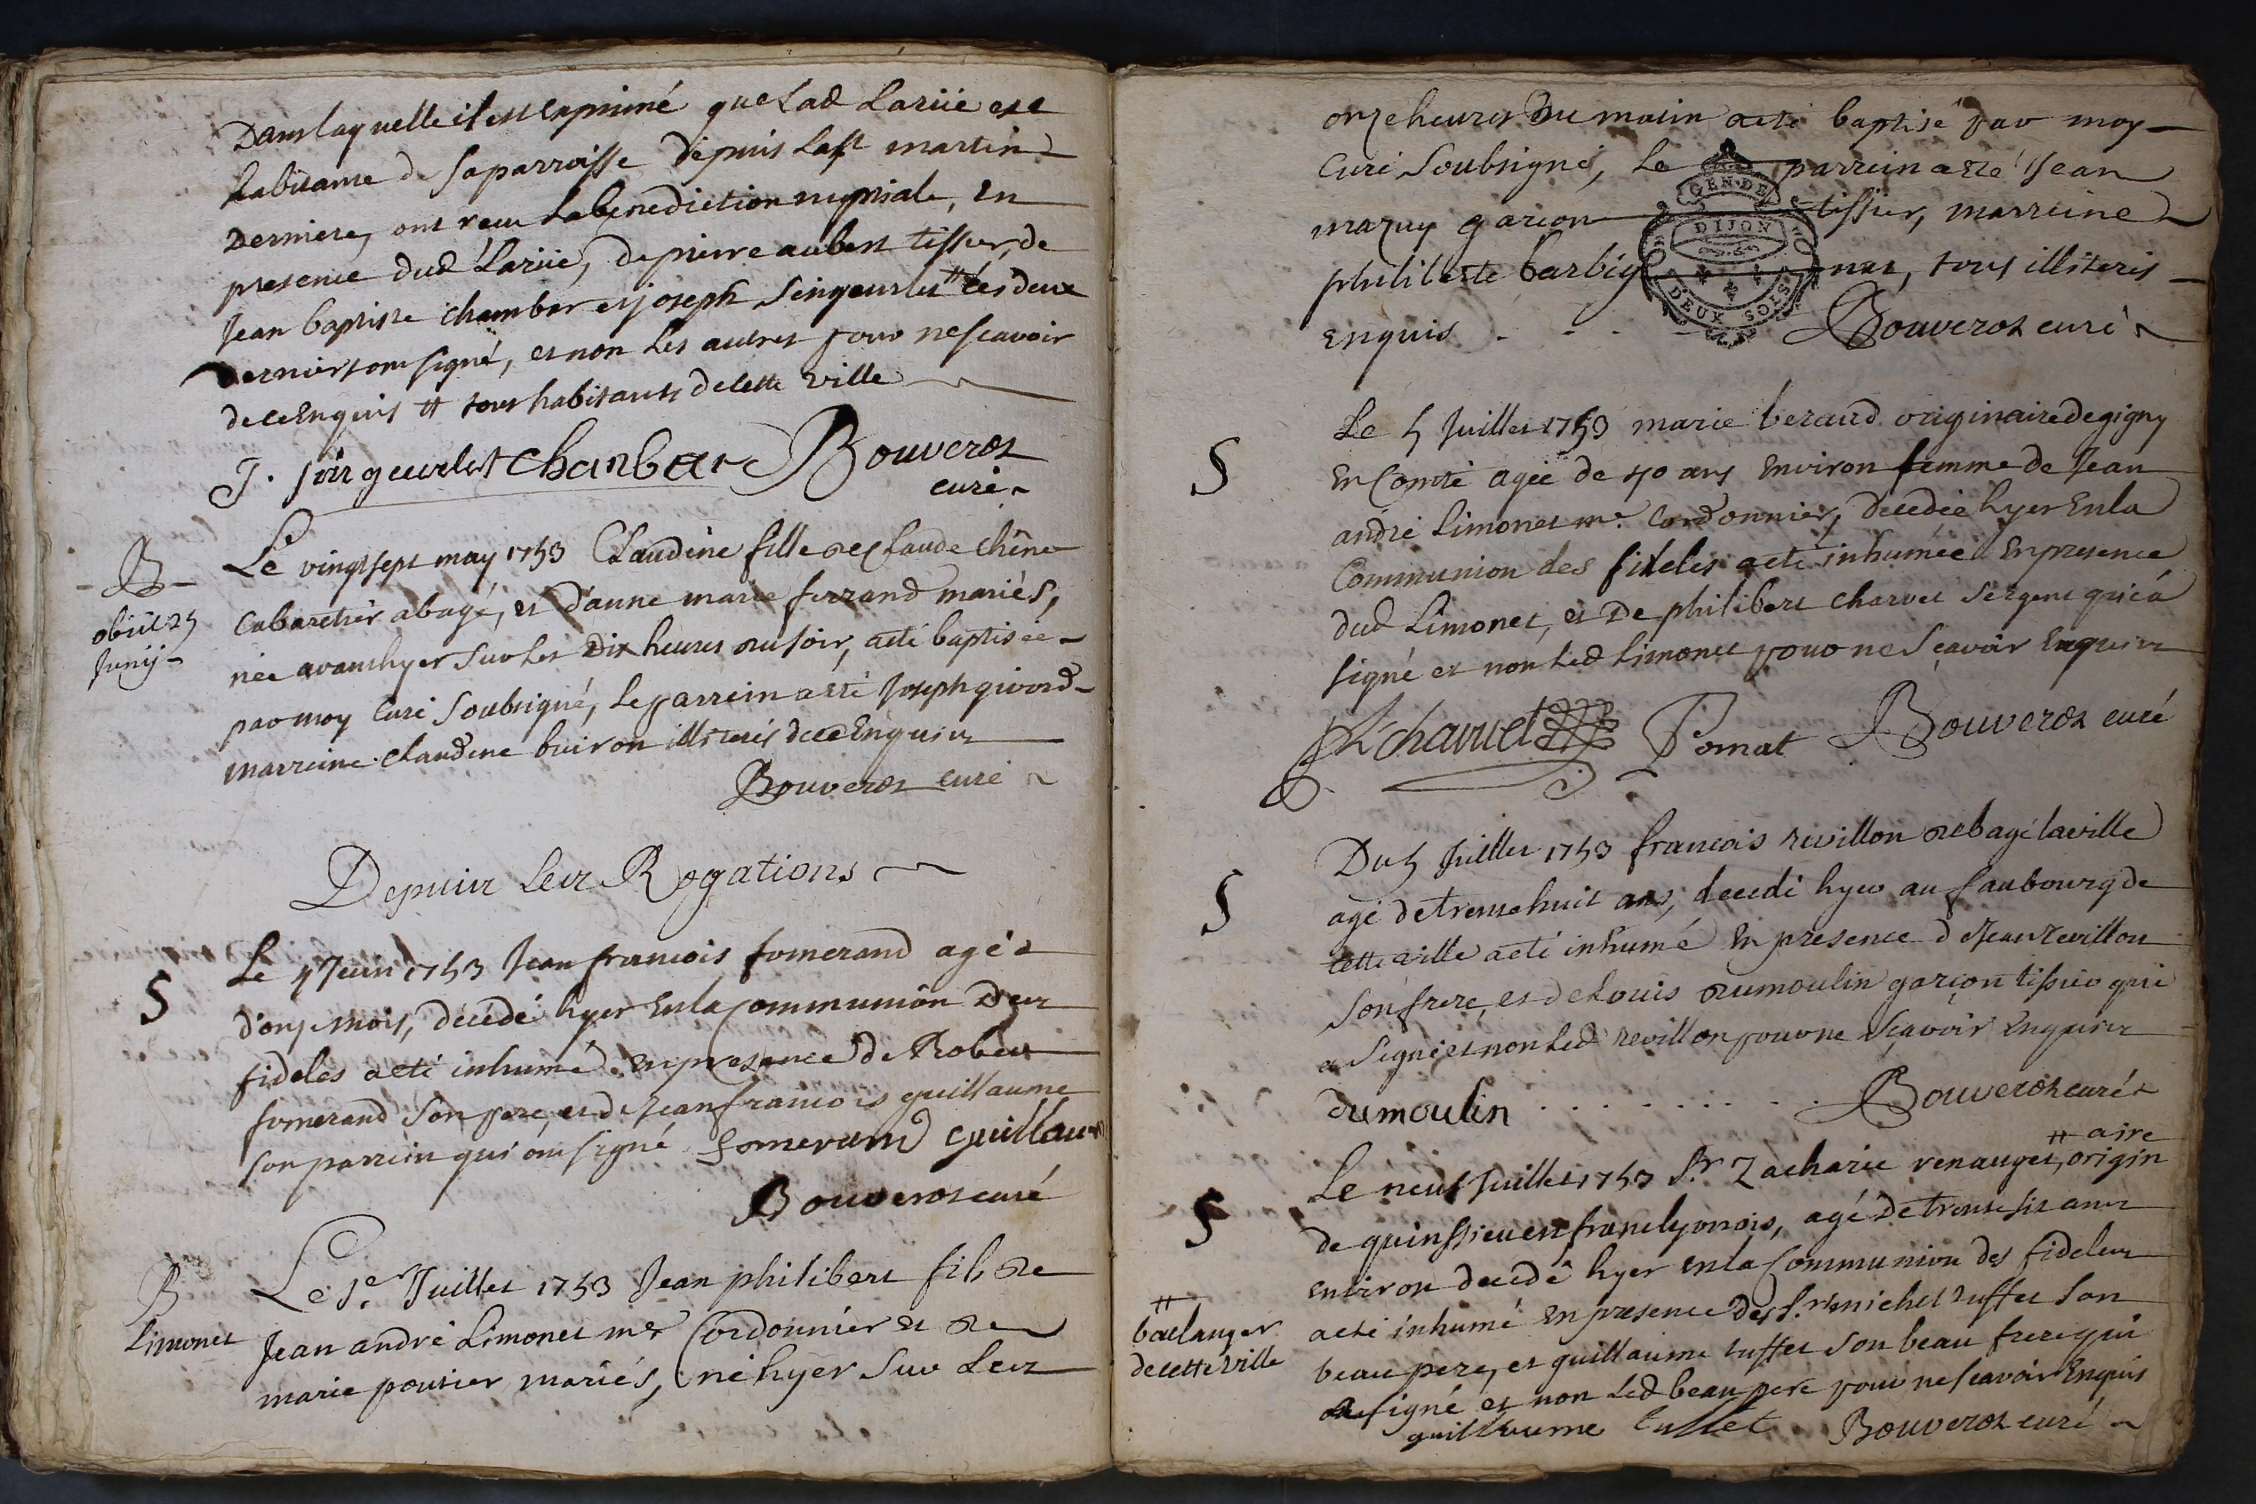 Dans laquelle il est exprimé que lad Lariie est
habitante de sa parroisse depuis la st martin
derniere, ont recu la benediction nuptiale, en
presence dud Lariie, de pierre aubert tissier, de
Jean baptiste chambar et joseph Singeurlet # les deux
derniers ont signé, et non les autres pour ne scavoir
de ce Enquis # tous habitants de cette ville
J. singeurlet chanbar Bouverot
curé
B
obiit 25
Junij
Le vingt sept may 1753 Claudine fille de Claude chêne
Cabaretier a bagé, et d'anne marie ferrand mariés,
née avant hyer sur les dix heures du soir, a eté baptisée
par moy Curé soubsigné, le parrein a eté Joseph givord
marreine Claudine buiron illiterés de ce Enquis
Bouverot curé
Depuis Les Rogations
S
Le 4 Juin 1753 Jean francois fomerand agé
d'onze mois, decedé hyer En la Communion des
fideles a eté inhumé En presence de Robert
fomerand son pere, et de Jean francois guillaume
son parrein qui ont signé fomerand Guillaum
Bouverot curé
B
Limonet
Le 1er Juillet 1753 Jean philibert fils de
Jean andré Limonet me Cordonnier et de
marie poutier mariés, né hyer sur Les
onze heures du matin a eté baptisé par moy
Curé soubsigné, Le parrein a eté Jean
mazuy garcon tissier, marreine
philiberte barbig tous illiterés
Enquis . - - - Bouverot curé
GEN. DE
DIJON
DEUX SOLS
S
Le 5 Juillet 1753 marie beraud originaire de gigny
En Comté agée de 40 ans Environ femme de Jean
andré Limonet me. Cordonnier, decedée hyer En la
Communion des fideles a eté inhumée En presence
dud Limonet, et De philibert charvet sergent qui a
signé et non Led Limonet pour ne sçavoir Enquis
Ph charuet Pomat Bouverot curé
S
Du 5 Juillet 1753 francois revillon de bagé la ville
agé de trente huit ans, decedé hyer au faubourg de
cette ville a eté inhumé En presence de Jean revillon
son frere, et de Louis dumoulin garçon tissier qui
a signé et non Led revillon pour ne sçavoir Enquis
dumoulin . . . . . . . . . Bouverot curé
S
Le neuf Juillet 1753 Sr. Zacharie renauget, # originaire
de quinssieu en franc lyonois, agé de trente six ans
environ decedé hyer en la Communion des fideles
a eté inhumé En presence des Srs michel tuffet son
beau pere, et guillaume tuffet son beau frere qui
a signé et non Led beau pere pour ne scavoir Enquis
guillaume tuffet Bouverot curé
#
baclanger
de cette ville